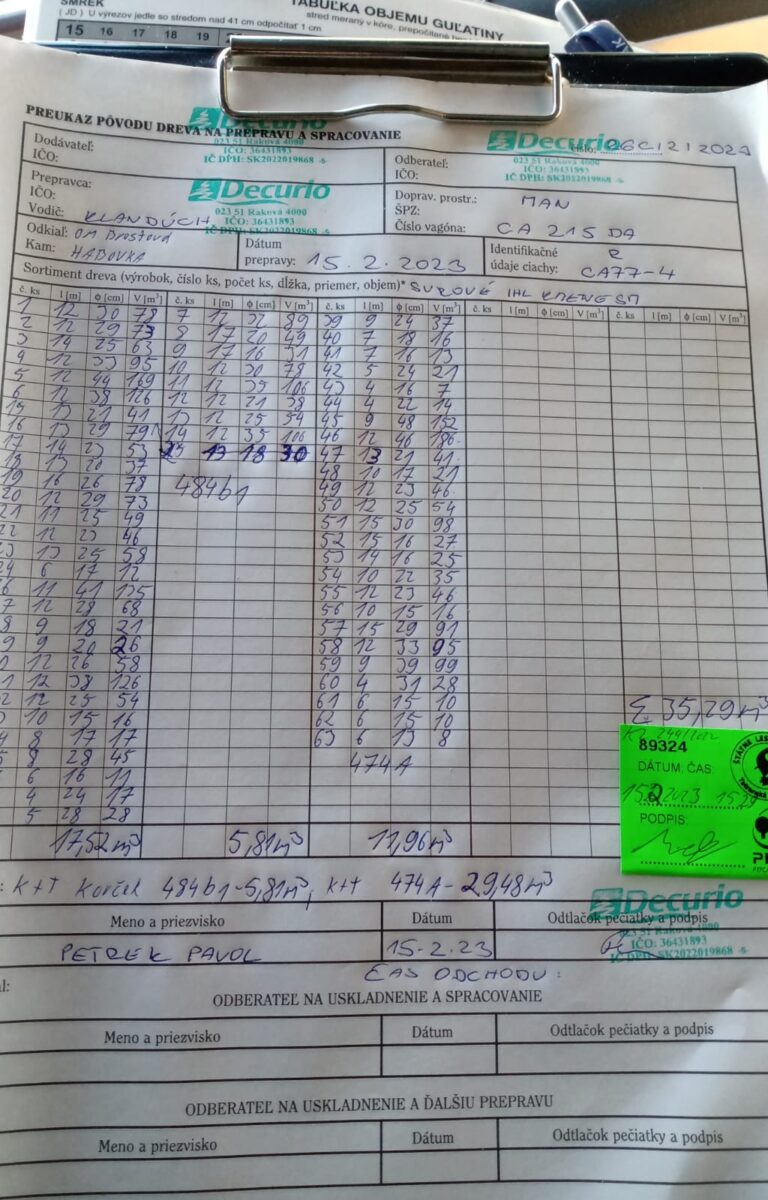 SMREK
TABUĽKA OBJEMU GUĽATINY
( JD ) U výrezov jedle so stredom nad 41 cm odpočítať 1 cm
stred meraný v kôre, prepočítané
15 16 17 18 19
PREUKAZ PÔVODU DREVA NA PREPRAVU A SPRACOVANIE
Decurio
023 51 Raková 4000
IČO: 36431893
IČ DPH: SK2022019868 -5-
Decurio
023 51 Raková 4000
IČO: 36431893
IČ DPH: SK2022019868 -5-
Dodávateľ:
IČO:
Odberateľ:
IČO:
Prepravca:
IČO:
Vodič: KLANDÚCH
Decurio
023 51 Raková 4000
IČO: 36431893
IČ DPH: SK2022019868 -5-
Doprav. prostr.: MAN
ŠPZ:
Číslo vagóna: CA 215 DA
Odkiaľ: OM
Kam: HADOVKA
Dátum
prepravy: 15.2.2023
Identifikačné R
údaje ciachy: CA77-4
Sortiment dreva (výrobok, číslo ks, počet ks, dĺžka, priemer, objem)* SUROVÉ IHL KMENE SM
č. ks l [m] ϕ [cm] V [m³] č. ks l [m] ϕ [cm] V [m³] č. ks l [m] ϕ [cm] V [m³] č. ks l [m] ϕ [cm] V [m³] č. ks l [m] ϕ [cm] V [m³]
1 12 30 78 7 12 32 89 39 9 24 37
2 12 29 73 8 17 20 49 40 7 18 16
3 14 25 63 9 17 16 31 41 7 16 13
4 12 33 95 10 12 30 78 42 5 24 21
5 12 44 169 11 12 35 106 43 4 16 7
6 12 38 126 12 12 21 38 44 4 22 14
15 13 21 41 13 12 25 54 45 9 48 152
16 13 29 79 14 12 35 106 46 12 46 186
17 14 23 53 23 13 18 30 47 13 21 41
18 13 20 37 48 10 17 21
19 16 26 78 484b1 49 12 23 46
20 12 29 73 50 12 25 54
21 11 25 49 51 15 30 98
22 12 23 46 52 15 16 27
13 25 58 53 14 16 25
24 6 17 12 54 10 22 35
6 11 41 135 55 12 23 46
7 12 28 68 56 10 15 16
8 9 18 21 57 15 29 91
9 9 20 26 58 12 33 95
0 12 26 58 59 9 39 99
1 12 38 126 60 4 31 28
2 12 25 54 61 6 15 10
10 15 16 62 6 15 10
4 8 17 17 63 6 13 8
5 8 28 45 474A
6 16 11
4 24 17
5 28 28
Σ 35,29 m³
17,52m³ 5,81m³ 11,96m³
89324
DÁTUM, ČAS:
15.2.2023 15
PODPIS:
: K+T Korček 484b1-5,81m³, K+T 474A-29,48m³
Meno a priezvisko Dátum Odtlačok pečiatky a podpis
PETREK PAVOL 15.2.23
Decurio
023 51 Raková 4000
IČO: 36431893
IČ DPH: SK2022019868 -5-
ČAS ODCHODU:
ODBERATEĽ NA USKLADNENIE A SPRACOVANIE
Meno a priezvisko Dátum Odtlačok pečiatky a podpis
ODBERATEĽ NA USKLADNENIE A ĎALŠIU PREPRAVU
Meno a priezvisko Dátum Odtlačok pečiatky a podpis